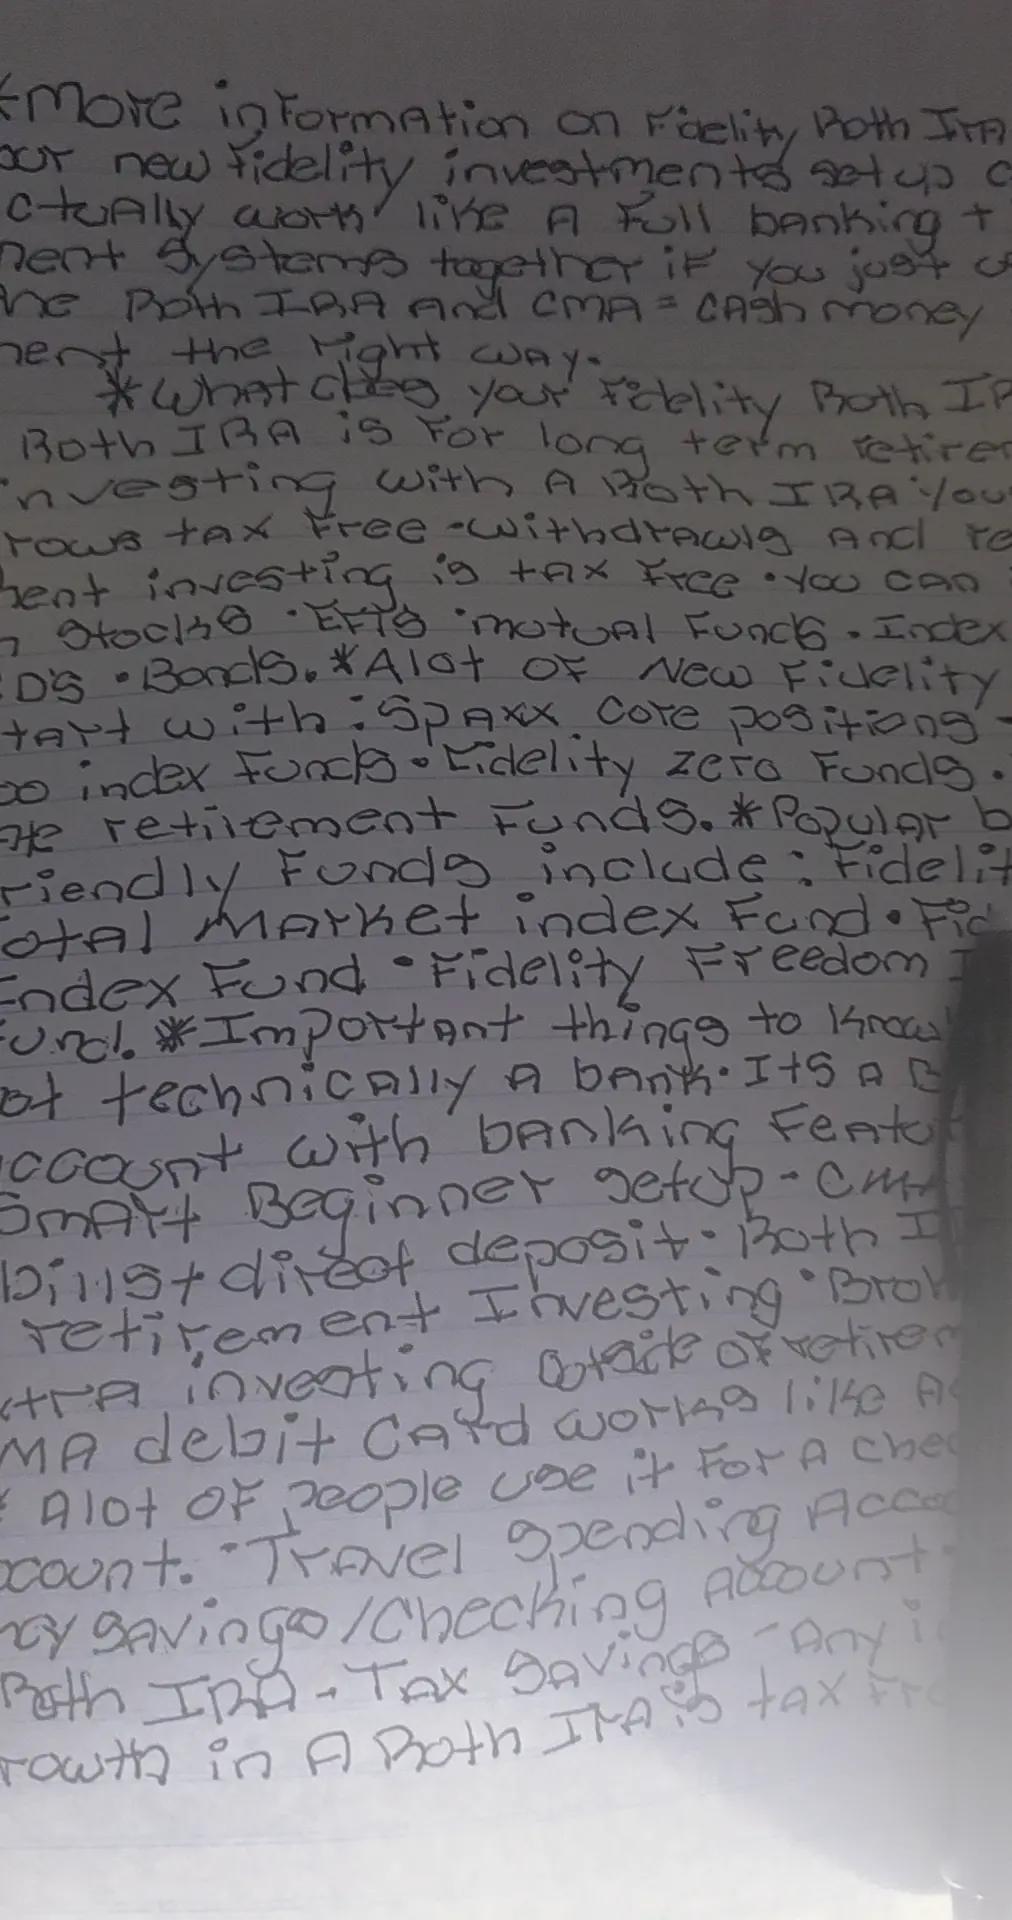 *More information on Fidelity Roth IRA
our new fidelity investments setup c
ctually work like A Full banking +
ment systems together if you just u
he Roth IRA And CMA = cash money
ment the right way.
*What does your Fidelity Roth IR
Roth IRA is For long term retirem
investing with A Roth IRA you
rows tax Free - withdrawls And re
ment investing is tAx Free • You can i
n Stocks • EFTs • mutual Funds • Index
CD's • Bonds. *Alot OF New Fidelity
tart with: Spaxx Core positions -
00 index Funds • Fidelity zero Funds •
ate retirement Funds. *Popular b
riendly Funds include: Fidelit
otal Market index Fund • Fid
Index Fund • Fidelity Freedom I
Fund. *Important things to Know
ot technically A bank. Its A B
ccount with banking Featu
Smart Beginner setup - CMA
bills + direct deposit • Roth I
retirement Investing • Brok
xtra investing outside of retirem
MA debit Card works like A
* Alot OF people use it For A chec
ccount. • Travel spending Acco
ncy savings / Checking Account
Roth IRA - Tax Savings - Any i
rowth in A Roth IRA is tax Fre